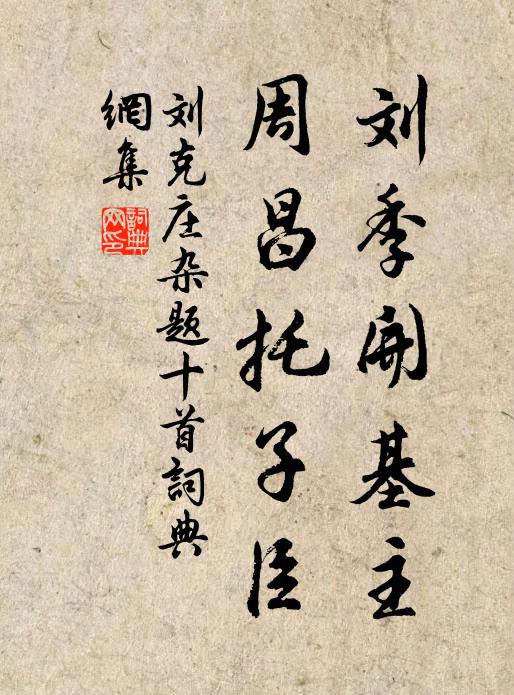 刘季開基主
周昌托子臣
刘克庄杂题十首詞典
網集
詞典
网印